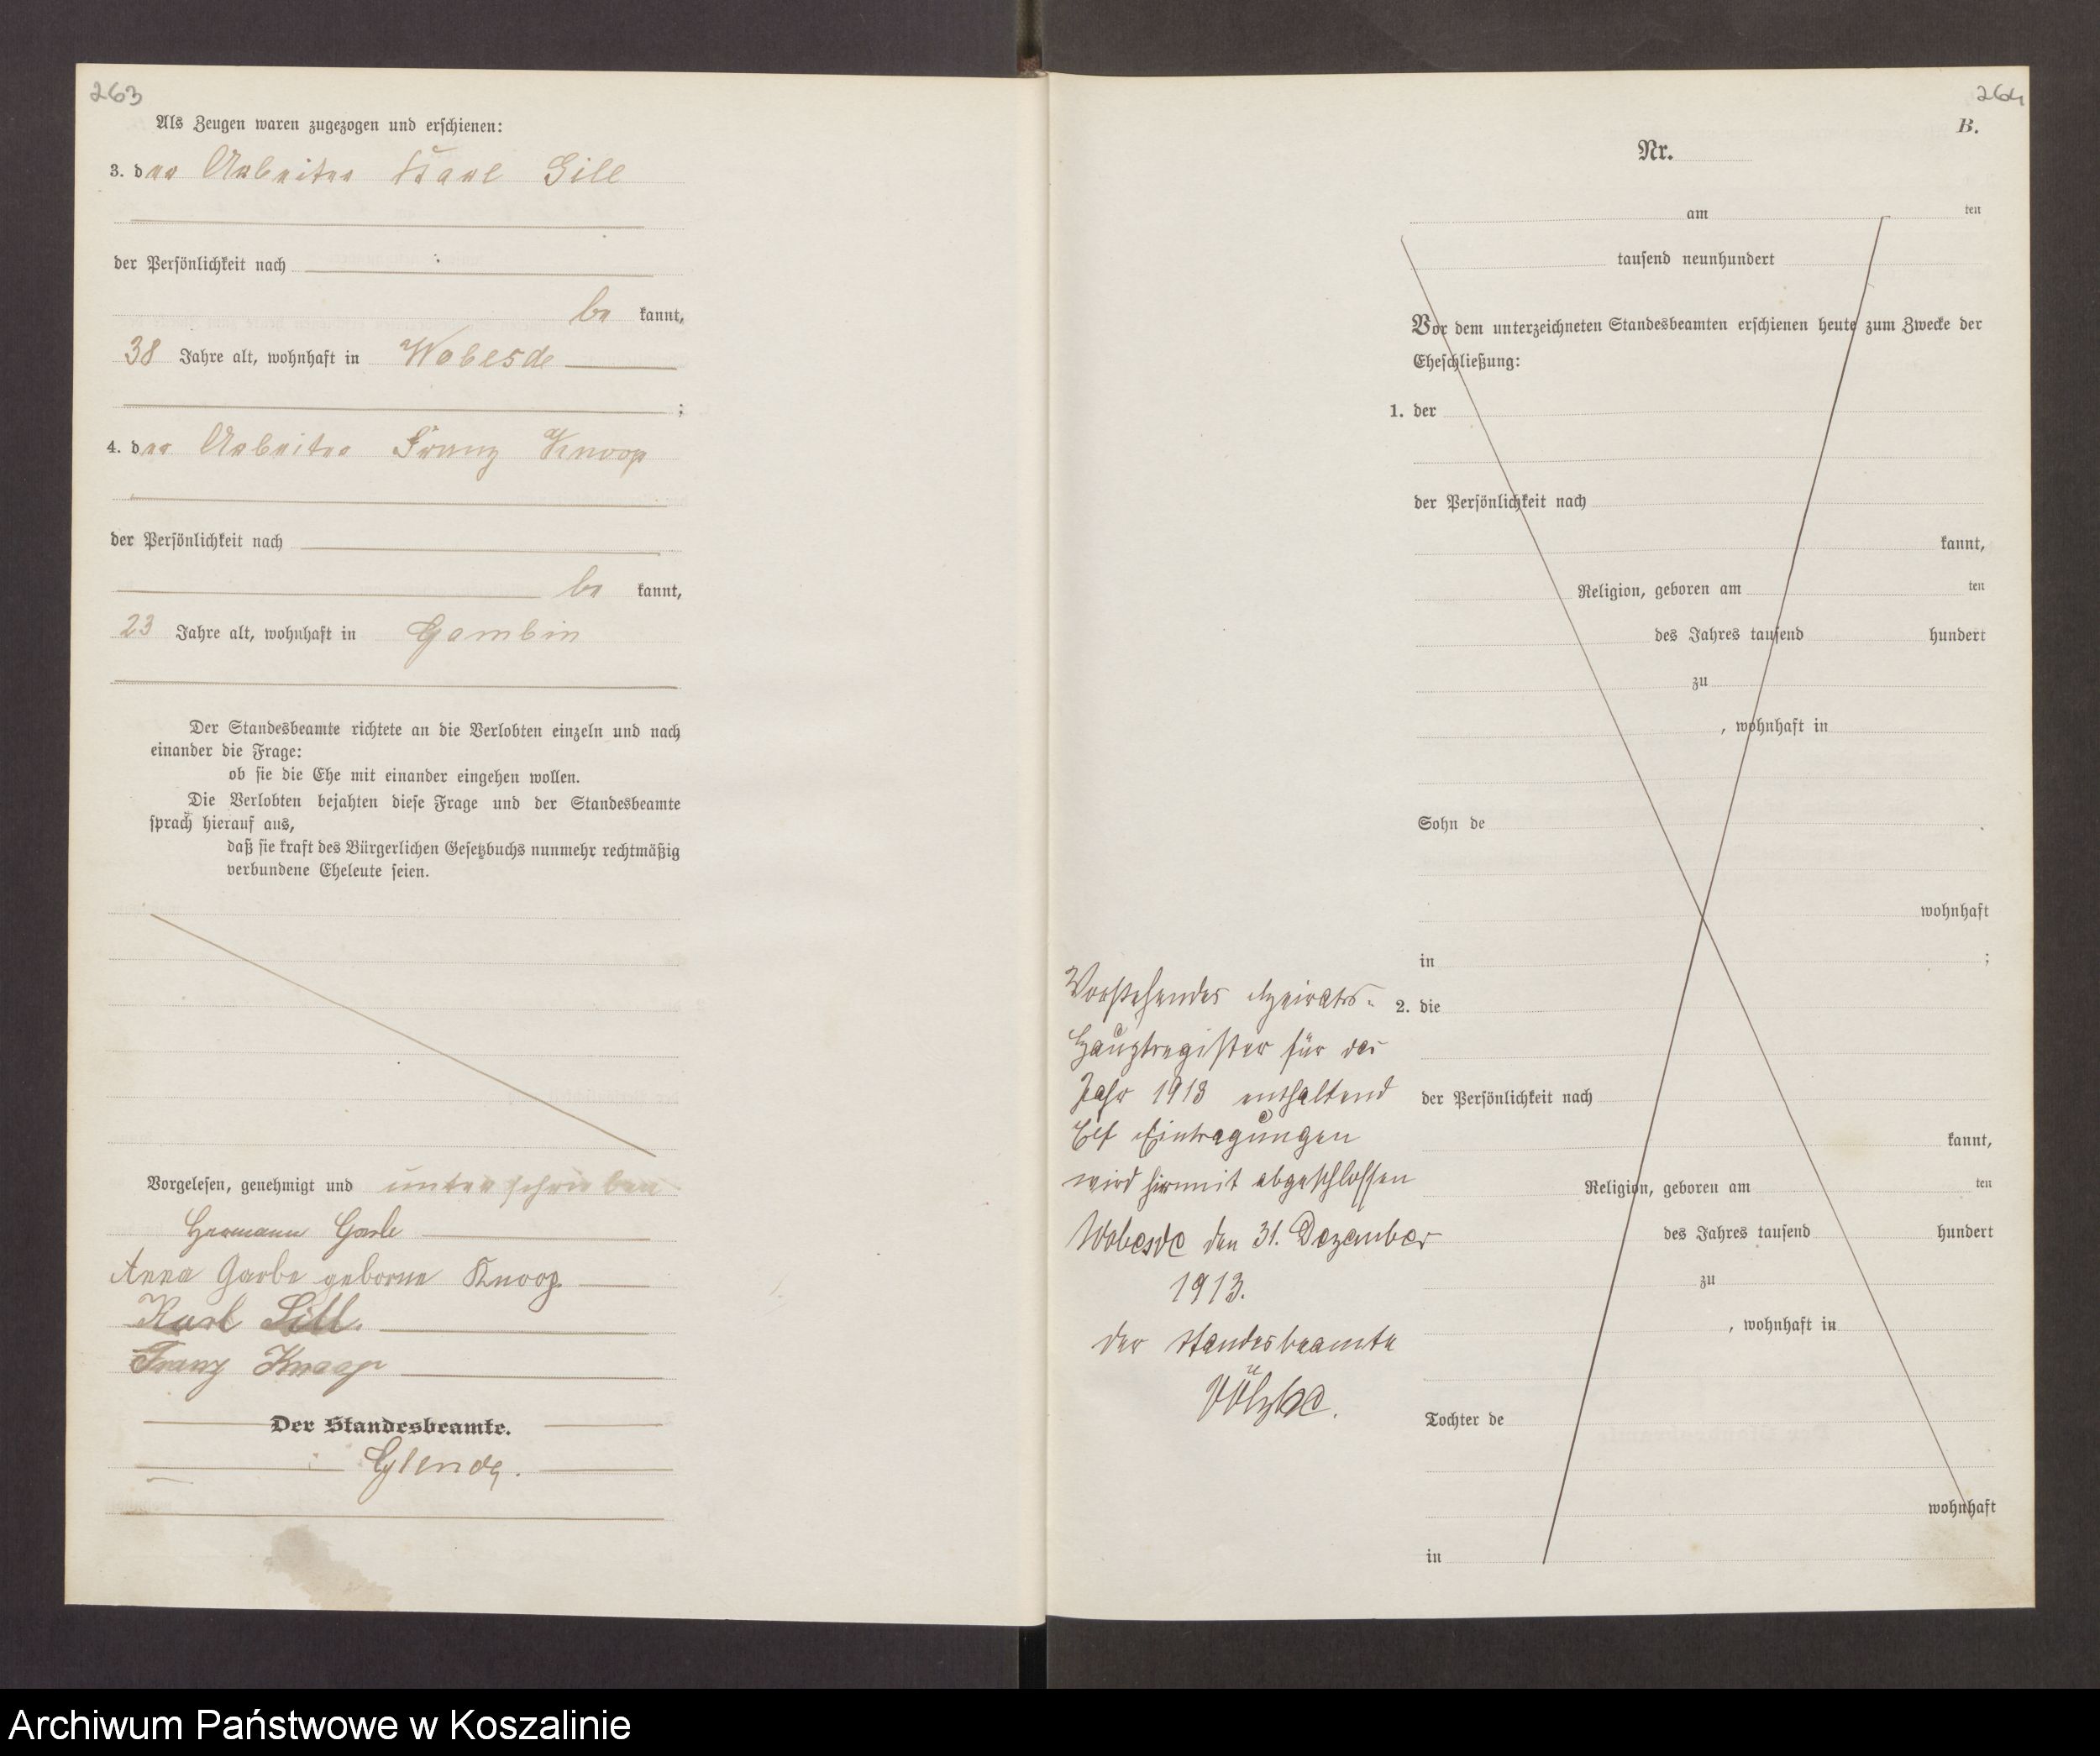 263
Als Zeugen waren zugezogen und erschienen:
3. der Arbeiter Karl Sill
der Persönlichkeit nach
be kannt,
38 Jahre alt, wohnhaft in Wobesde
;
4. der Arbeiter Franz Knoop
der Persönlichkeit nach
be kannt,
23 Jahre alt, wohnhaft in Gambin
Der Standesbeamte richtete an die Verlobten einzeln und nach
einander die Frage:
ob sie die Ehe mit einander eingehen wollen.
Die Verlobten bejahten diese Frage und der Standesbeamte
sprach hierauf aus,
daß sie kraft des Bürgerlichen Gesetzbuchs nunmehr rechtmäßig
verbundene Eheleute seien.
Vorgelesen, genehmigt und unterschrieben
Hermann Garbe
Anna Garbe geborne Knoop
Karl Sill.
Franz Knoop
Der Standesbeamte.
264
B.
Nr.
am ten
tausend neunhundert
Vor dem unterzeichneten Standesbeamten erschienen heute zum Zwecke der
Eheschließung:
1. der
der Persönlichkeit nach
kannt,
Religion, geboren am ten
des Jahres tausend hundert
zu
, wohnhaft in
Sohn de
wohnhaft
in ;
2. die
der Persönlichkeit nach
kannt,
Religion, geboren am ten
des Jahres tausend hundert
zu
, wohnhaft in
Tochter de
wohnhaft
in
Vorstehendes Heirats-
Hauptregister für das
Jahr 1913 enthaltend
Elf Eintragungen
wird hiermit abgeschlossen
Wobesde den 31. Dezember
1913.
Der Standesbeamte
Völzke.
Archiwum Państwowe w Koszalinie